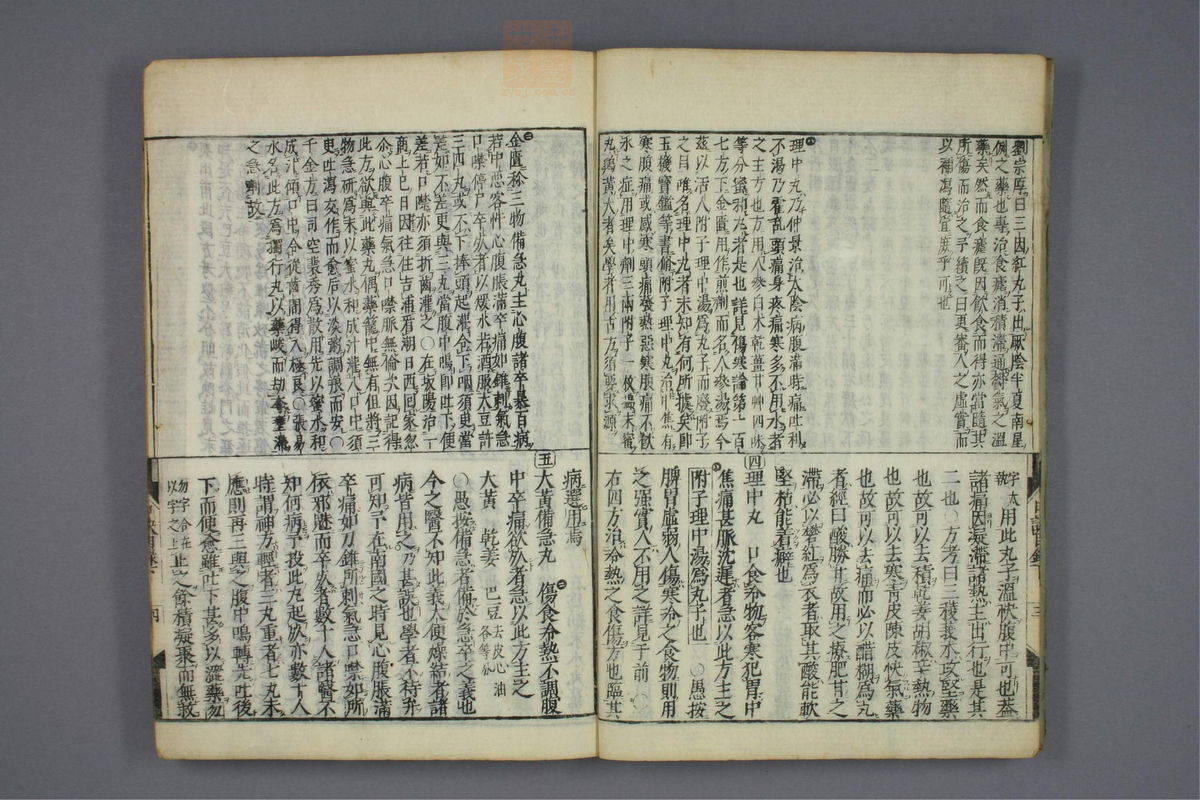 劉宗厚曰三因紅丸子出厥陰半夏南星
例之藥也專治食瘧消積滯通神氣之溫
藥矣然而食瘧既因飲食而得亦當隨其
所傷而治之予續之曰更審人之虛實而
以補瀉隨宜庶乎可也
理中丸乃仲景治太陰病腹滿時痛吐利
不渴乃霍亂頭痛身疼痛寒多不用水者
之主方也方用人參白朮乾薑甘艸四味
等分蜜和丸者是也詳見傷寒論第七百
七方下金匱用作煎劑而名人參湯焉今
茲以活人附子理中湯爲丸子而廢附子
之目唯名理中丸者未知有何所據矣即
玉機寶鑑等書脩附子理中丸治中焦有
寒腹痛或感寒頭痛發熱惡寒腹痛不飲
水之症用理中劑三兩附子一枚溫末蜜
丸雞黃大者矣學者用古方須要求源
字太用此丸子溫快腹中可也蓋
諸痛因凝滯諸熱主出行也是其
二也○方考曰三稜莪朮攻堅藥
也故可以去積乾姜胡椒辛熱物
也故可以去寒青皮陳皮快氣藥
也故可以去痛而必以醋糊爲丸
者經曰酸勝甘故用之療肥甘之
滯必以礬紅爲衣者取其酸能軟
堅枯能着癖也
四 理中丸 口食冷物客寒犯胃中
焦痛甚脈沈遲者急以此方主之
附子理中湯爲丸子也 ○愚按
脾胃虛弱人傷寒冷之食物則用
之強實人不用之詳見于前 ○
右四方治冷熱之食傷方也臨其
金匱称三物備急丸主心腹諸卒暴百病
若中惡客忤心腹脹滿卒痛如錐刺氣急
口噤停尸卒死者以煖水若酒服大豆許
三四丸或不下捧頭起灌令下咽須臾當
差如不差更與三丸當腹中鳴即吐下便
差若口噤亦須折齒灌之○在坂陽治一
商上巳日因往住吉浦有潮日西回家忽
然心腹卒痛氣急口噤脈無倫次因記得
此方欲與此藥丸偶藥籠中無有但將三
物急研爲末以蜜水和成汁灌入口中須
臾吐瀉交作而愈后以淡粥調養而安○
千金方曰司空裴秀爲散用先以蜜水和
成汁傾口中令從齒間得入極良○張易
水名此方爲獨行丸以藥峻而
之急劑故
病選用焉
五 大黃備急丸 傷食冷熱不調腹
中卒痛欲死者急以此方主之
大黃 乾姜 巴豆去皮心油各等分
○愚按備急者備於急卒之義也
今之醫不知此義大便燥結者諸
病皆用之乃甚誤也學者不待弁
可知予在南國之時見心腹脹滿
卒痛如刀錐所刺氣急口噤如所
依邪魅而卒死者數十人諸醫不
知何病予投此丸起死亦數十人
時謂神方輕者三丸重者七丸未
應則再三與之腹中鳴轉先吐後
下而便愈雖吐下甚多以澁藥勿
勿字合在止之餘積凝聚而無救
以字之上